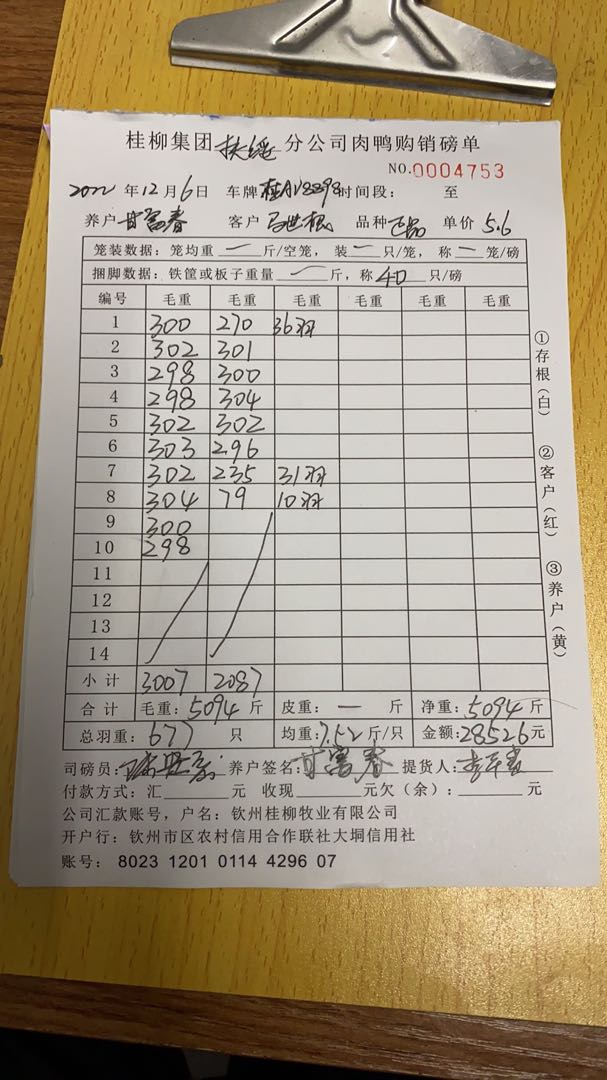 桂柳集团扶绥分公司肉鸭购销磅单
NO.0004753
2022年12月6日 车牌桂AV8398时间段： 至
养户甘富春 客户马世根 品种正品 单价5.6
笼装数据：笼均重一斤/空笼，装一只/笼，称一笼/磅
捆脚数据：铁筐或板子重量一斤，称40只/磅
编号 毛重 毛重 毛重 毛重 毛重 毛重
1 300 270 36羽
2 302 301
3 298 300
4 298 304
5 302 302
6 303 296
7 302 235 31羽
8 304 79 10羽
9 300
10 298
11
12
13
14
小计 3007 2087
合计 毛重：5094斤 皮重：一斤 净重：5094斤
总羽重：677只 均重：7.52斤/只 金额：28526元
司磅员： 养户签名：甘富春 提货人：
付款方式：汇 元 收现 元欠（余）： 元
公司汇款账号，户名：钦州桂柳牧业有限公司
开户行：钦州市区农村信用合作联社大垌信用社
账号：8023 1201 0114 4296 07
①存根（白）
②客户（红）
③养户（黄）